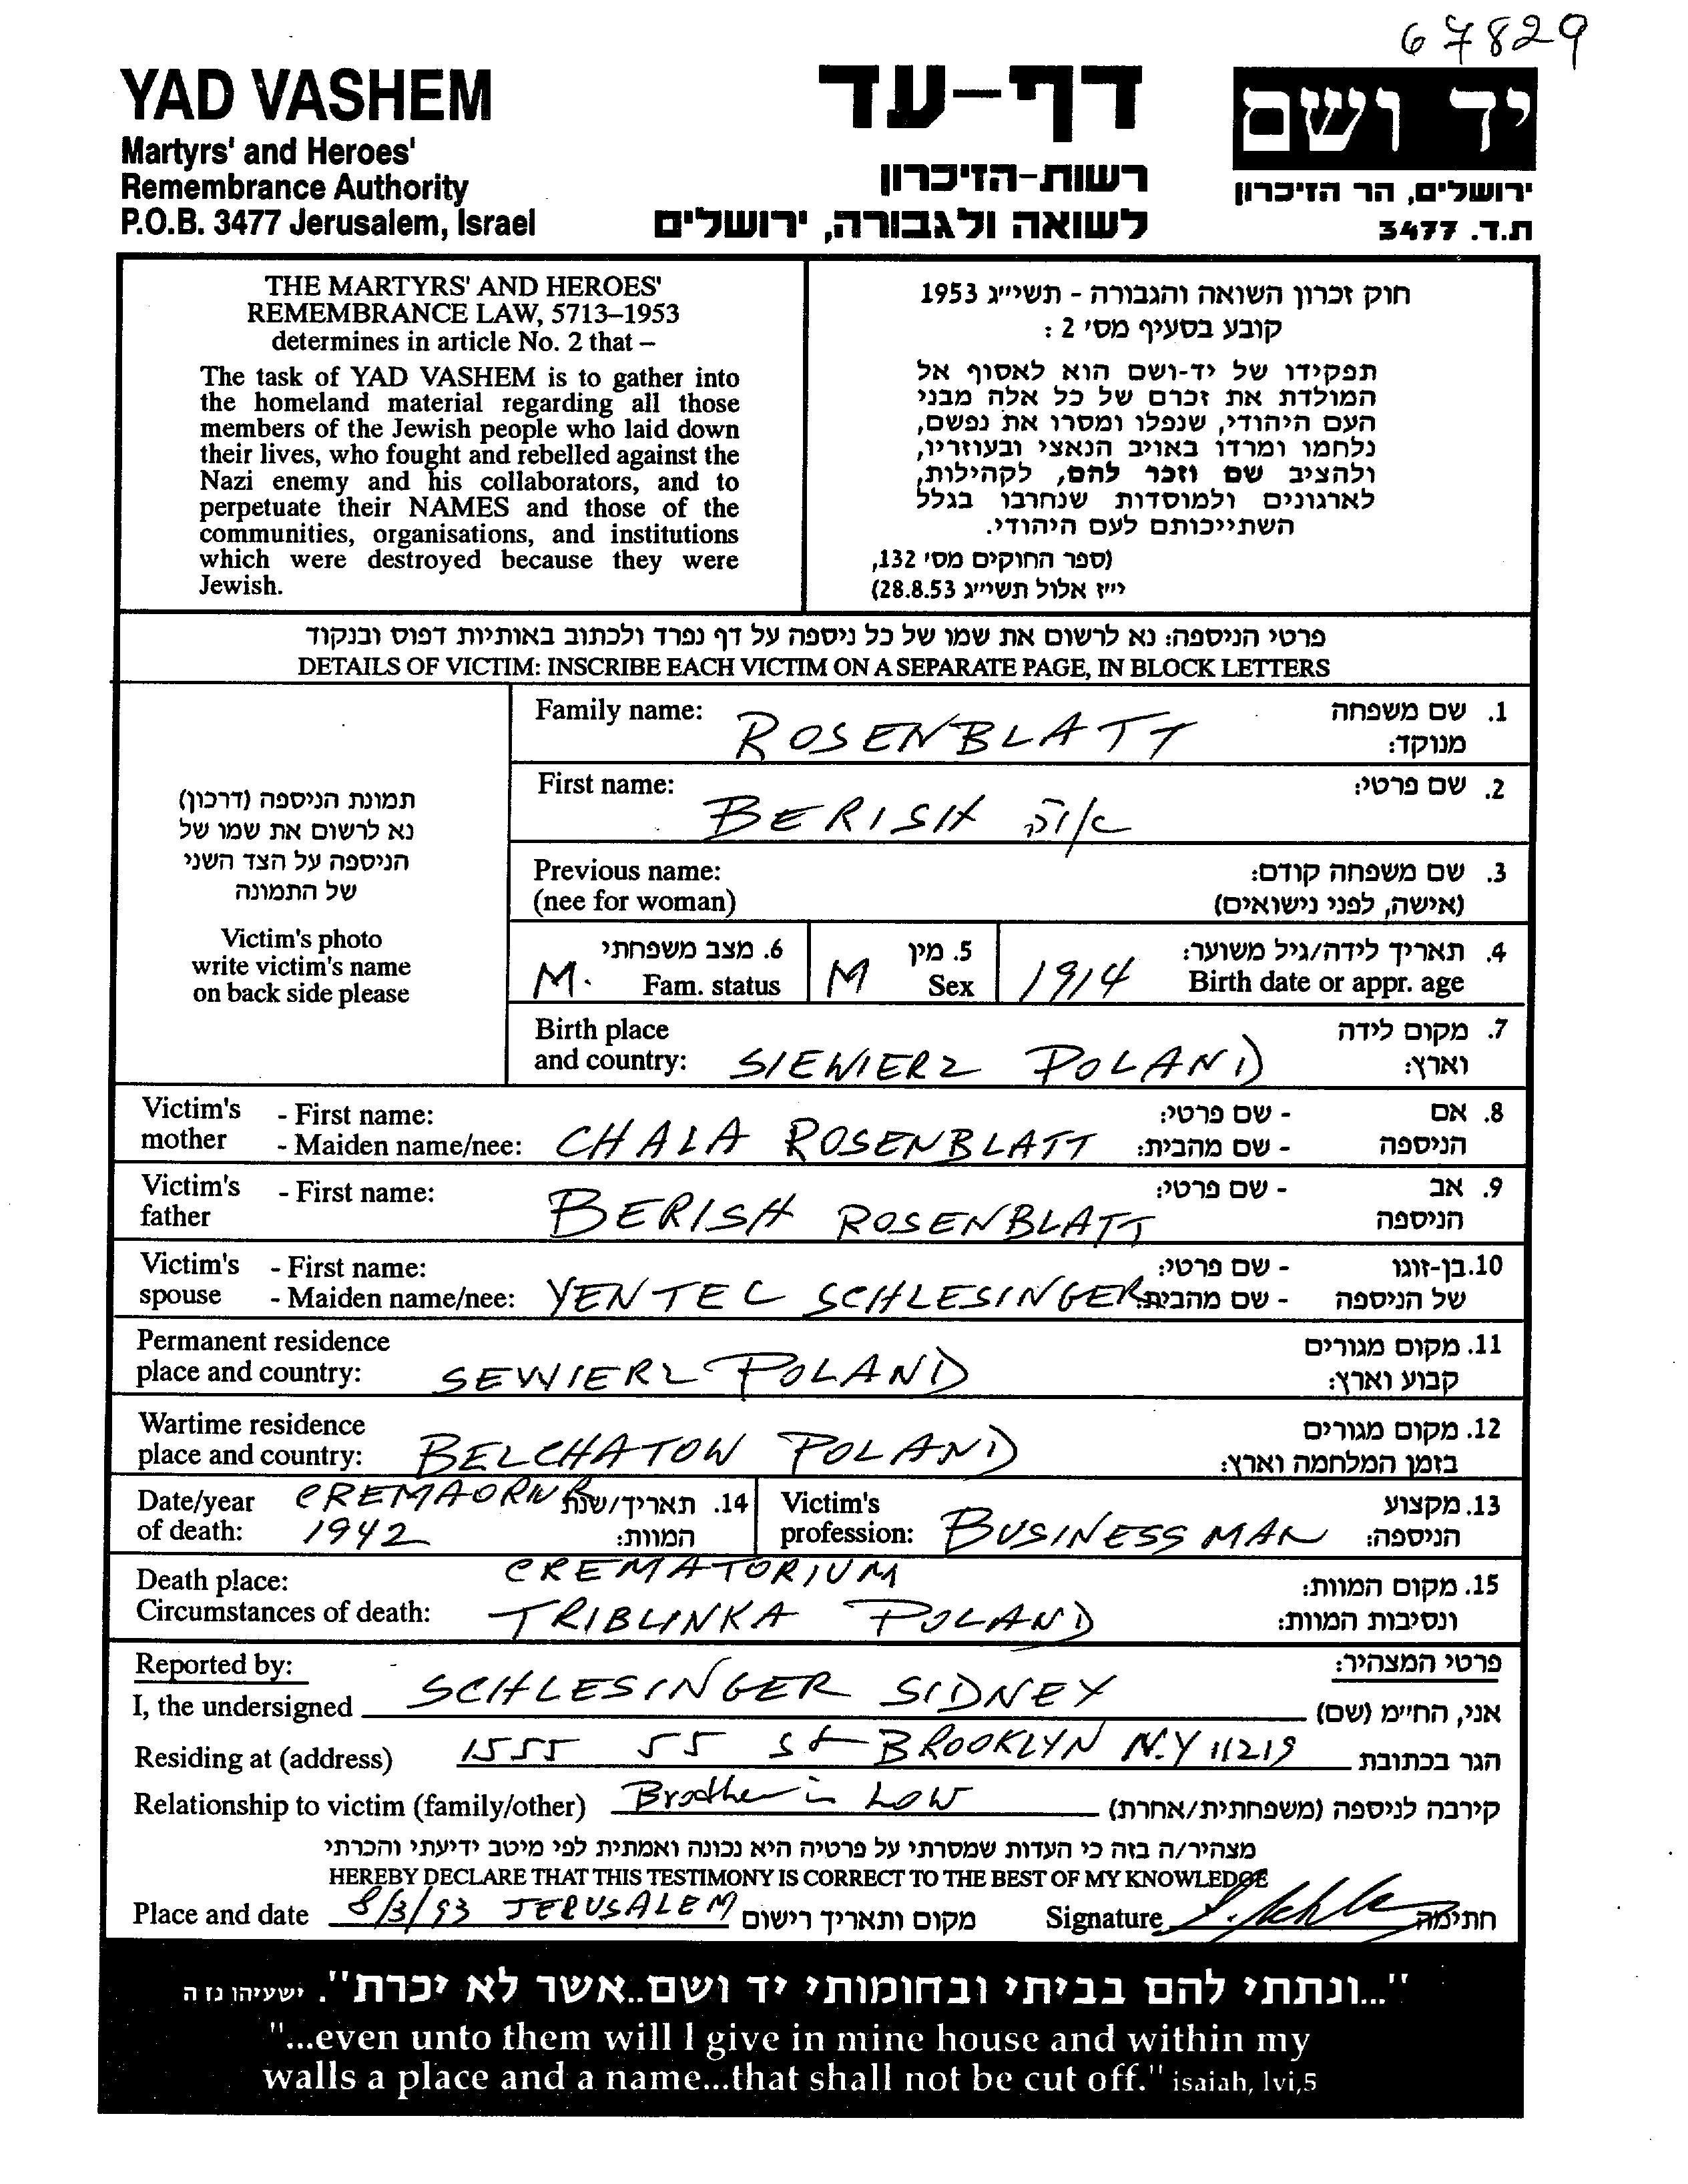 67829
YAD VASHEM
Martyrs' and Heroes'
Remembrance Authority
P.O.B. 3477 Jerusalem, Israel
דף-עד
רשות-הזיכרון
לשואה ולגבורה, ירושלים
יד ושם
ירושלים, הר הזיכרון
ת.ד. 3477
THE MARTYRS' AND HEROES'
REMEMBRANCE LAW, 5713–1953
determines in article No. 2 that –
The task of YAD VASHEM is to gather into
the homeland material regarding all those
members of the Jewish people who laid down
their lives, who fought and rebelled against the
Nazi enemy and his collaborators, and to
perpetuate their NAMES and those of the
communities, organisations, and institutions
which were destroyed because they were
Jewish.
חוק זכרון השואה והגבורה - תשי״ג 1953
קובע בסעיף מס׳ 2 :
תפקידו של יד-ושם הוא לאסוף אל
המולדת את זכרם של כל אלה מבני
העם היהודי, שנפלו ומסרו את נפשם,
נלחמו ומרדו באויב הנאצי ובעוזריו,
ולהציב שם וזכר להם, לקהילות,
לארגונים ולמוסדות שנחרבו בגלל
השתייכותם לעם היהודי.
(ספר החוקים מס׳ 132,
י״ז אלול תשי״ג 28.8.53)
פרטי הניספה: נא לרשום את שמו של כל ניספה על דף נפרד ולכתוב באותיות דפוס ובנקוד
DETAILS OF VICTIM: INSCRIBE EACH VICTIM ON A SEPARATE PAGE, IN BLOCK LETTERS
תמונת הניספה (דרכון)
נא לרשום את שמו של
הניספה על הצד השני
של התמונה
Victim's photo
write victim's name
on back side please
Family name: ROSENBLATT 1. שם משפחה
מנוקד:
First name: BERISH 2. שם פרטי:
Previous name: 3. שם משפחה קודם:
(nee for woman) (אישה, לפני נישואים)
6. מצב משפחתי 5. מין 4. תאריך לידה/גיל משוער:
M. Fam. status M Sex 1914 Birth date or appr. age
Birth place 7. מקום לידה
and country: SIEWIERZ POLAND וארץ:
Victim's - First name: - שם פרטי: 8. אם
mother - Maiden name/nee: CHALA ROSENBLATT - שם מהבית: הניספה
Victim's - First name: - שם פרטי: 9. אב
father BERISH ROSENBLATT הניספה
Victim's - First name: - שם פרטי: 10. בן-זוגו
spouse - Maiden name/nee: YENTEL SCHLESINGER - שם מהבית: של הניספה
Permanent residence 11. מקום מגורים
place and country: SEWIERZ POLAND קבוע וארץ:
Wartime residence 12. מקום מגורים
place and country: BELCHATOW POLAND בזמן המלחמה וארץ:
Date/year 14. תאריך/שנת Victim's 13. מקצוע
of death: 1942 המוות: profession: BUSINESS MAN הניספה:
Death place: CREMATORIUM 15. מקום המוות:
Circumstances of death: TRIBLINKA POLAND ונסיבות המוות:
Reported by: פרטי המצהיר:
I, the undersigned SCHLESINGER SIDNEY אני, החי״מ (שם)
Residing at (address) 1555 55 St BROOKLYN N.Y 11219 הגר בכתובת
Relationship to victim (family/other) Brother in Low קירבה לניספה (משפחתית/אחרת)
מצהיר/ה בזה כי העדות שמסרתי על פרטיה היא נכונה ואמתית לפי מיטב ידיעתי והכרתי
HEREBY DECLARE THAT THIS TESTIMONY IS CORRECT TO THE BEST OF MY KNOWLEDGE
Place and date 8/3/93 JERUSALEM מקום ותאריך רישום Signature חתימה
"...ונתתי להם בביתי ובחומותי יד ושם..אשר לא יכרת". ישעיהו נז ה
"...even unto them will I give in mine house and within my
walls a place and a name...that shall not be cut off." isaiah, lvi,5